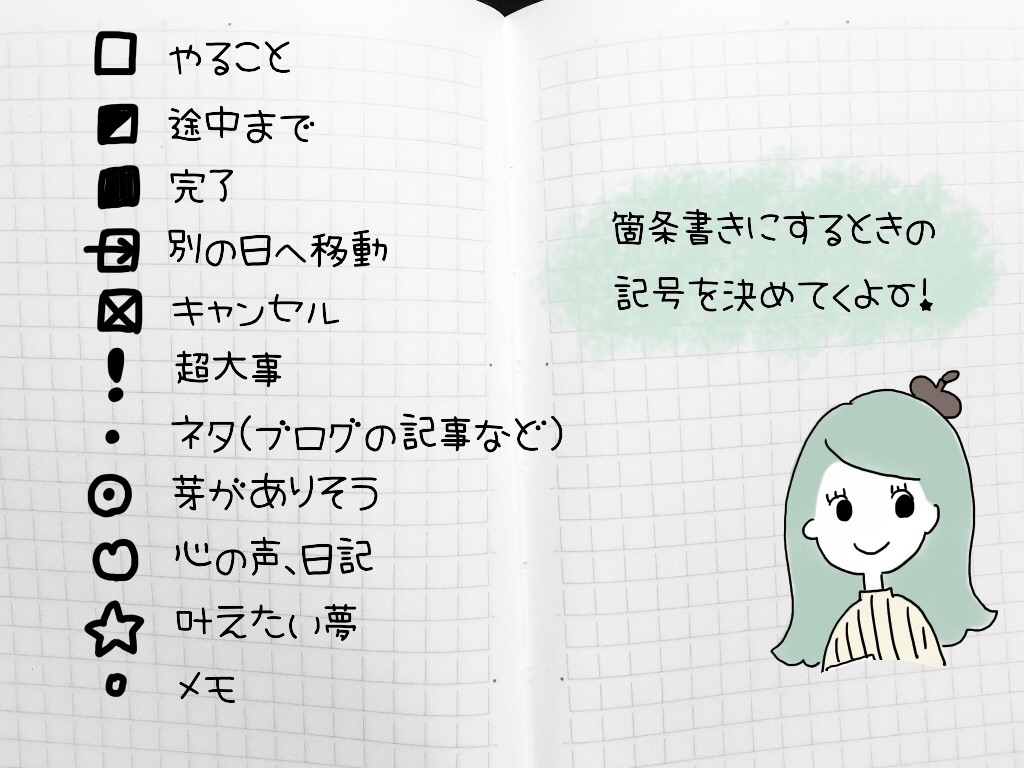 やること
途中まで
完了
別の日へ移動
キャンセル
超大事
ネタ(ブログの記事など)
芽がありそう
心の声、日記
叶えたい夢
メモ
箇条書きにするときの
記号を決めてくよ♉!